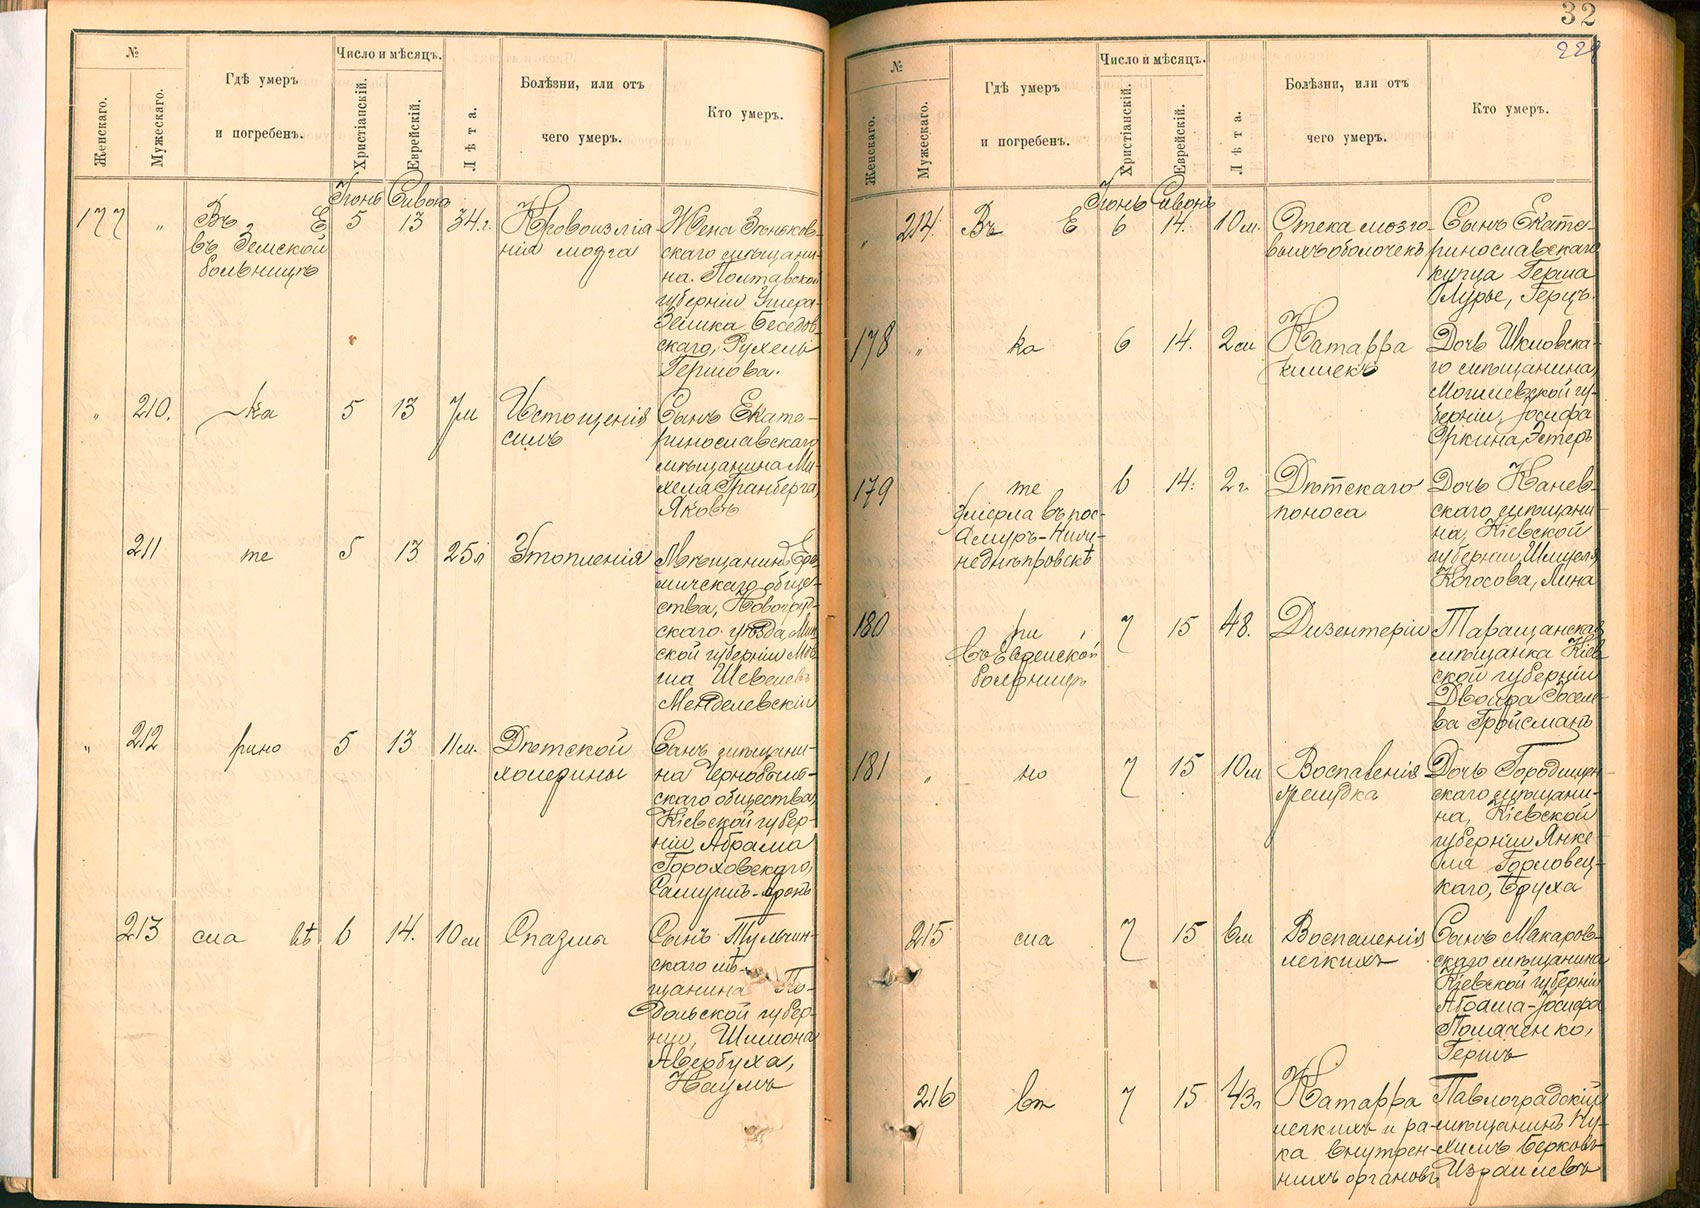 №
Женскаго.
Мужескаго.
Гдѣ умеръ
и погребенъ.
Число и мѣсяцъ.
Христіанскій.
Еврейскій.
Лѣта.
Болѣзни, или отъ
чего умеръ.
Кто умеръ.
Іюнь Сивонъ
177 „ Въ Е 5 13 34 г.
въ Земской
больницѣ
Кровоизлія-
нія мозга
Жена Зѣньков-
скаго мѣщани-
на Полтавской
губерніи
Зелика Бесѣдов-
скаго, Рухель
Гершова.
„ 210. ка 5 13 7м
Истощенія
силъ
Сынъ Екате-
ринославскаго
мѣщанина Ми-
хеля Гранберга,
Яковъ
211 те 5 13 25л
Утопленія
Мѣщанинъ
общес-
ства, Новогруд-
скаго уѣзда Мин
ской губерніи Мов
ша Шевелевъ
Менделевскій
„ 212 рино 5 13 11м.
Дѣтской
холерины
Сынъ мѣщани-
на Чернобыль-
скаго общества,
Кіевской губер-
ніи Абрама
Гороховскаго,
Самуилъ-Аронъ
213 сла вѣ 6 14. 10м
Спазмы
Сынъ Тульчин-
скаго мѣ-
щанина По-
дольской губер-
ніи, Шлиома
Авербуха,
Наумъ
32
229
№
Женскаго.
Мужескаго.
Гдѣ умеръ
и погребенъ.
Число и мѣсяцъ.
Христіанскій.
Еврейскій.
Лѣта.
Болѣзни, или отъ
чего умеръ.
Кто умеръ.
Іюнь Сивонъ
„ 214. Въ Е 6 14. 10м.
Отека мозго-
выхъ оболочекъ
Сынъ Екате-
ринославскаго
купца Герша
Лурье, Герцъ.
178 „ ка 6 14. 2м
Катарра
кишекъ
Дочь Шкловска-
го мѣщанина,
Могилевской гу-
берніи, Іосифа
Эркина, Эстеръ
179 те 6 14. 2г.
умерла въ пос-
Амуръ-Ниж-
неднѣпровскѣ
Дѣтскаго
поноса
Дочь Канев-
скаго мѣщани-
на, Кіевской
губерніи Шмуеля
Когосова, Лина
180 ри 7 15 48.
въ Еврейской
больницѣ
Дизентеріи
Таращанская
мѣщанка Кіев
ской губерніи
Двойра Іосел-
ва Гройсманъ
181 „ но 7 15 10м
Воспаленія
желудка
Дочь Городищен-
скаго мѣщани-
на, Кіевской
губерніи Янке-
ля Горловец-
каго, Бруха
215 сла 7 15 6м
Воспаленія
легкихъ
Сынъ Макаров-
скаго мѣщанина
Кіевской губерніи
Абрама-Іосифа
Помаченко,
Гершъ
216 вѣ 7 15 43г
Катарра
легкихъ и ра-
ка внутрен-
нихъ органовъ
Павлоградскій
мѣщанинъ Ну-
химъ Берковъ
Израилевъ